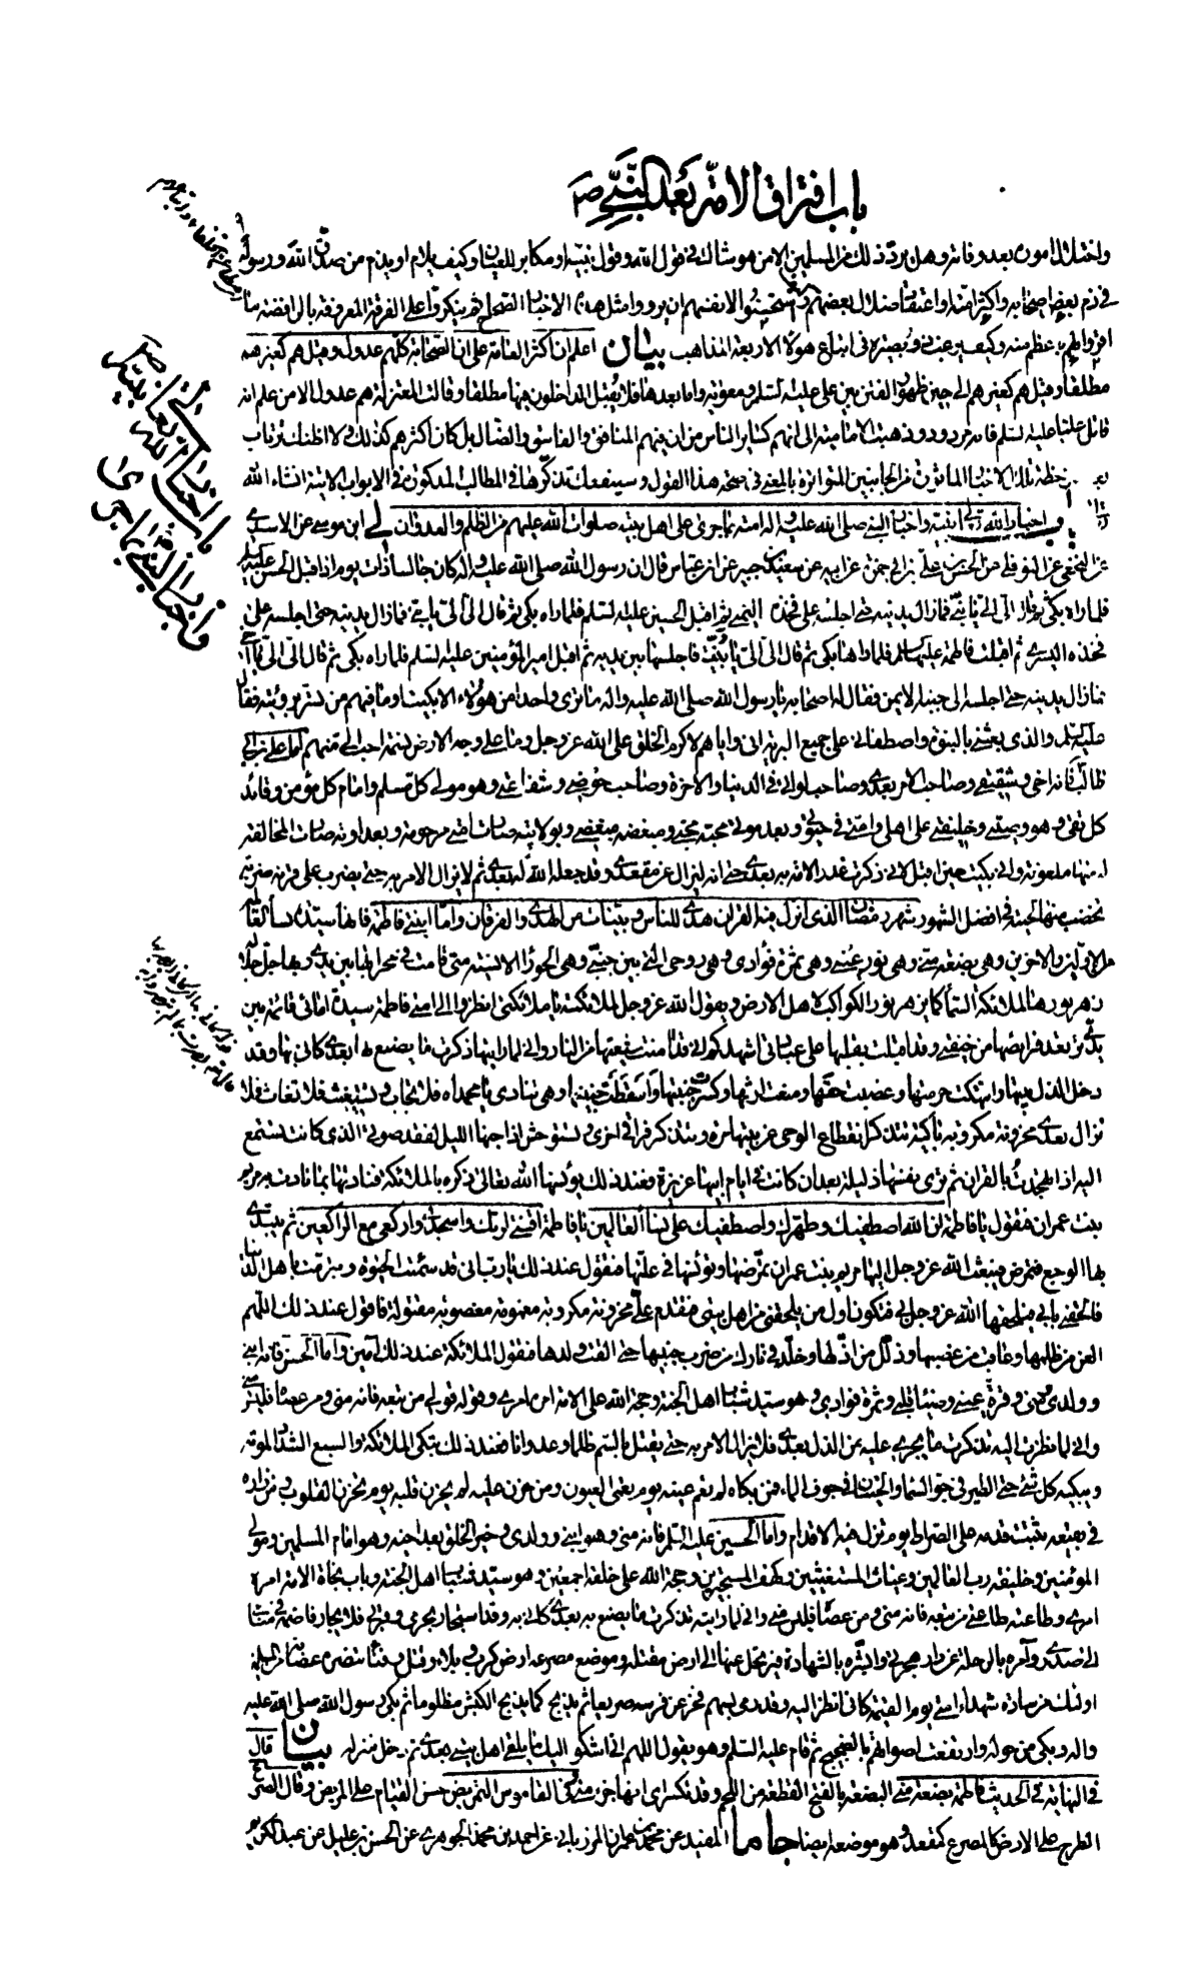 باب افتراق الامة بعد النبي ص
واختلال الامور بعد وفاته وهل يرد ذلك من المسلمين الا من هو شاك في قول الله وقول نبيه او مكابر للعيان وكيف يلام او يذم من صدق الله ورسوله
في ذم بعض اصحابه واكثر امته او اعتقد ضلال بعضهم وكيف استحسنوا لانفسهم ان يرووا مثل هذه الاخبار الصحاح ثم ينكروا على الفرقة المعروفة بالرافضة ما
اقروا لهم باعظم منه وكيف يرغب ذو بصيرة في اتباع هؤلاء الاربعة المذاهب بيان اعلم ان اكثر العامة على ان الصحابة كلهم عدول وقيل هم كغيرهم
مطلقا وقيل هم كغيرهم الى حين ظهور الفتن بين علي عليه السلم ومعوية واما بعدها فلا يقبل الداخلون فيها مطلقا وقالت المعتزلة هم عدول الا من علم انه
قاتل عليا عليه السلم فانه مردود وذهبت الامامية الى انهم كسائر الناس من ان فيهم المنافق والفاسق والضال بل كان اكثرهم كذلك ولا اظنك ترتاب
بعد ملاحظة تلك الاخبار الماثورة من الجانبين المتواترة بالمعنى في صحة هذا القول وسينفعك تذكرها في المطالب المذكورة في الابواب الاتية انشاء الله
تعالى باب اخبار الله تعالى نبيه واخبار النبي صلى الله عليه واله امته بما جرى على اهل بيته صلوات الله عليهم من الظلم والعدوان لي ابن موسى عن الاسدي
عن النخعي عن النوفلي عن الحسن بن علي بن ابي حمزة عن ابيه عن سعيد بن جبير عن ابن عباس قال ان رسول الله صلى الله عليه واله كان جالسا ذات يوم اذ اقبل الحسن عليه السلم
فلما راه بكى ثم قال الي الي يا بني فما زال يدنيه حتى اجلسه على فخذه اليمنى ثم اقبل الحسين عليه السلم فلما راه بكى ثم قال الي الي يا بني فما زال يدنيه حتى اجلسه على
فخذه اليسرى ثم اقبلت فاطمة عليها السلم فلما راها بكى ثم قال الي الي يا بنية فاجلسها بين يديه ثم اقبل امير المؤمنين عليه السلم فلما راه بكى ثم قال الي الي يا اخي
فما زال يدنيه حتى اجلسه الى جنبه الايمن فقال له اصحابه يا رسول الله صلى الله عليه واله ما ترى واحدا من هؤلاء الا بكيت او ما فيهم من تسر برؤيته فقال
عليه السلم والذي بعثني بالنبوة واصطفاني على جميع البرية اني واياهم لاكرم الخلق على الله عز وجل وما على وجه الارض نسمة احب الي منهم اما علي بن ابي
طالب فانه اخي وشقيقي وصاحب الامر بعدي وصاحب لوائي في الدنيا والاخرة وصاحب حوضي وشفاعتي وهو مولى كل مسلم وامام كل مؤمن وقائد
كل تقي وهو وصيي وخليفتي على اهلي وامتي في حيوتي وبعد موتي محبه محبي ومبغضه مبغضي وبولايته صارت امتي مرحومة وبعداوته صارت المخالفة
له منها ملعونة واني بكيت حين اقبل لاني ذكرت غدر الامة به بعدي حتى انه ليزال عن مقعدي وقد جعله الله له بعدي ثم لا يزال الامر به حتى يضرب على قرنه ضربة
تخضب منها لحيته في افضل الشهور شهر رمضان الذي انزل فيه القران هدى للناس وبينات من الهدى والفرقان واما ابنتي فاطمة فانها سيدة نساء العالمين
من الاولين والاخرين وهي بضعة مني وهي نور عيني وهي ثمرة فؤادي وهي روحي التي بين جنبي وهي الحوراء الانسية متى قامت في محرابها بين يدي ربها جل جلاله
زهر نورها لملائكة السماء كما يزهر نور الكواكب لاهل الارض ويقول الله عز وجل لملائكته يا ملائكتي انظروا الى امتي فاطمة سيدة امائي قائمة بين
يدي ترتعد فرائصها من خيفتي وقد اقبلت بقلبها على عبادتي اشهدكم اني قد امنت شيعتها من النار واني لما رايتها ذكرت ما يصنع بها بعدي كاني بها وقد
دخل الذل بيتها وانتهكت حرمتها وغصبت حقها ومنعت ارثها وكسر جنبها واسقطت جنينها وهي تنادي يا محمداه فلا تجاب وتستغيث فلا تغاث فلا
تزال بعدي محزونة مكروبة باكية تتذكر انقطاع الوحي عن بيتها مرة وتتذكر فراقي اخرى وتستوحش اذا جنها الليل لفقد صوتي الذي كانت تستمع
اليه اذا تهجدت بالقران ثم ترى نفسها ذليلة بعد ان كانت في ايام ابيها عزيزة فعند ذلك يؤنسها الله تعالى ذكره بالملائكة فنادتها بما نادت به مريم
بنت عمران فتقول يا فاطمة ان الله اصطفيك وطهرك واصطفيك على نساء العالمين يا فاطمة اقنتي لربك واسجدي واركعي مع الراكعين ثم يبتدي
بها الوجع فتمرض فيبعث الله عز وجل اليها مريم بنت عمران تمرضها وتؤنسها في علتها فتقول عند ذلك يا رب اني قد سئمت الحيوة وتبرمت باهل الدنيا
فالحقني بابي فيلحقها الله عز وجل بي فتكون اول من يلحقني من اهل بيتي فتقدم علي محزونة مكروبة مغمومة مغصوبة مقتولة فاقول عند ذلك اللهم
العن من ظلمها وعاقب من غصبها وذلل من اذلها وخلد في نارك من ضرب جنبها حتى القت ولدها فتقول الملائكة عند ذلك آمين واما الحسن فانه ابني
وولدي ومني وقرة عيني وضياء قلبي وثمرة فؤادي وهو سيد شباب اهل الجنة وحجة الله على الامة امره امري وقوله قولي من تبعه فانه مني ومن عصاه فليس مني
واني لما نظرت اليه تذكرت ما يجري عليه من الذل بعدي فلا يزال الامر به حتى يقتل بالسم ظلما وعدوانا فعند ذلك تبكي الملائكة والسبع الشداد لموته
ويبكيه كل شئ حتى الطير في جو السماء والحيتان في جوف الماء فمن بكاه لم تعم عينه يوم تعمى العيون ومن حزن عليه لم يحزن قلبه يوم تحزن القلوب ومن زاره
في بقيعه ثبتت قدمه على الصراط يوم تزل فيه الاقدام واما الحسين عليه السلم فانه مني وهو ابني وولدي وخير الخلق بعد اخيه وهو امام المسلمين ومولى
المؤمنين وخليفة رب العالمين وغياث المستغيثين وكهف المستجيرين وحجة الله على خلقه اجمعين وهو سيد شباب اهل الجنة وباب نجاة الامة امره
امري وطاعته طاعتي من تبعه فانه مني ومن عصاه فليس مني واني لما رايته تذكرت ما يصنع به بعدي كاني به وقد استجار بحرمي وقربي فلا يجار فاضمه في منامه
الى صدري وآمره بالرحلة عن دار هجرتي وابشره بالشهادة فيرتحل عنها الى ارض مقتله وموضع مصرعه ارض كرب وبلاء وقتل وفناء تنصره عصابة من المسلمين
اولئك من سادة شهداء امتي يوم القيمة كاني انظر اليه وقد رمي بسهم فخر عن فرسه صريعا ثم يذبح كما يذبح الكبش مظلوما ثم بكى رسول الله صلى الله عليه
واله وبكى من حوله وارتفعت اصواتهم بالضجيج ثم قام عليه السلم وهو يقول اللهم اني اشكو اليك ما يلقى اهل بيتي بعدي ثم دخل منزله بيان قال
في النهاية في الحديث فاطمة بضعة مني البضعة بالفتح القطعة من اللحم وقد تكسر اي انها جزء مني وفي القاموس التمريض حسن القيام على المريض وقال الصرع
الطرح على الارض كالمصرع كمقعد وهو موضعه ايضا جا ما المفيد عن محمد بن عمران المرزباني عن احمد بن محمد الجوهري عن الحسن بن عليل عن عبد الكريم
باب اخبار الله تعالى نبيه
واخبار النبي بما جرى